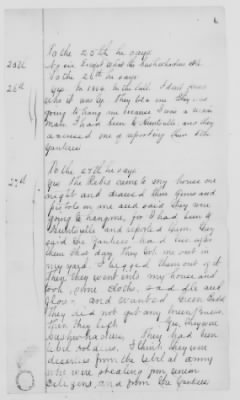 To the 25th he says
25th
No one except what the bushwhackers did.
To the 26th he says
26th
Yes. In 1864 in the fall. I dont know
who it was by. They told me they was
going to hang me because I was a union
man. I had been to Huntsville, and they
accused me of reporting them to the
Yankees
To the 27th he says
27th
Yes the Rebs came to my house one
night and drawed their guns and
pistols on me and said they were
going to hang me, for I had been to
Huntsville and reported them. They
said the Yankees had been after
them that day. They took me out in
my yard. I begged them out of it
Then they went into my house and
took some cloths, and
and wanted Green backs
They did not get any
than they left. Yes, they were
bushwhackers. They had been
rebel soldiers. I think they were
deserters from the rebel army
who were stealing from union
citizens, and from the Yankees